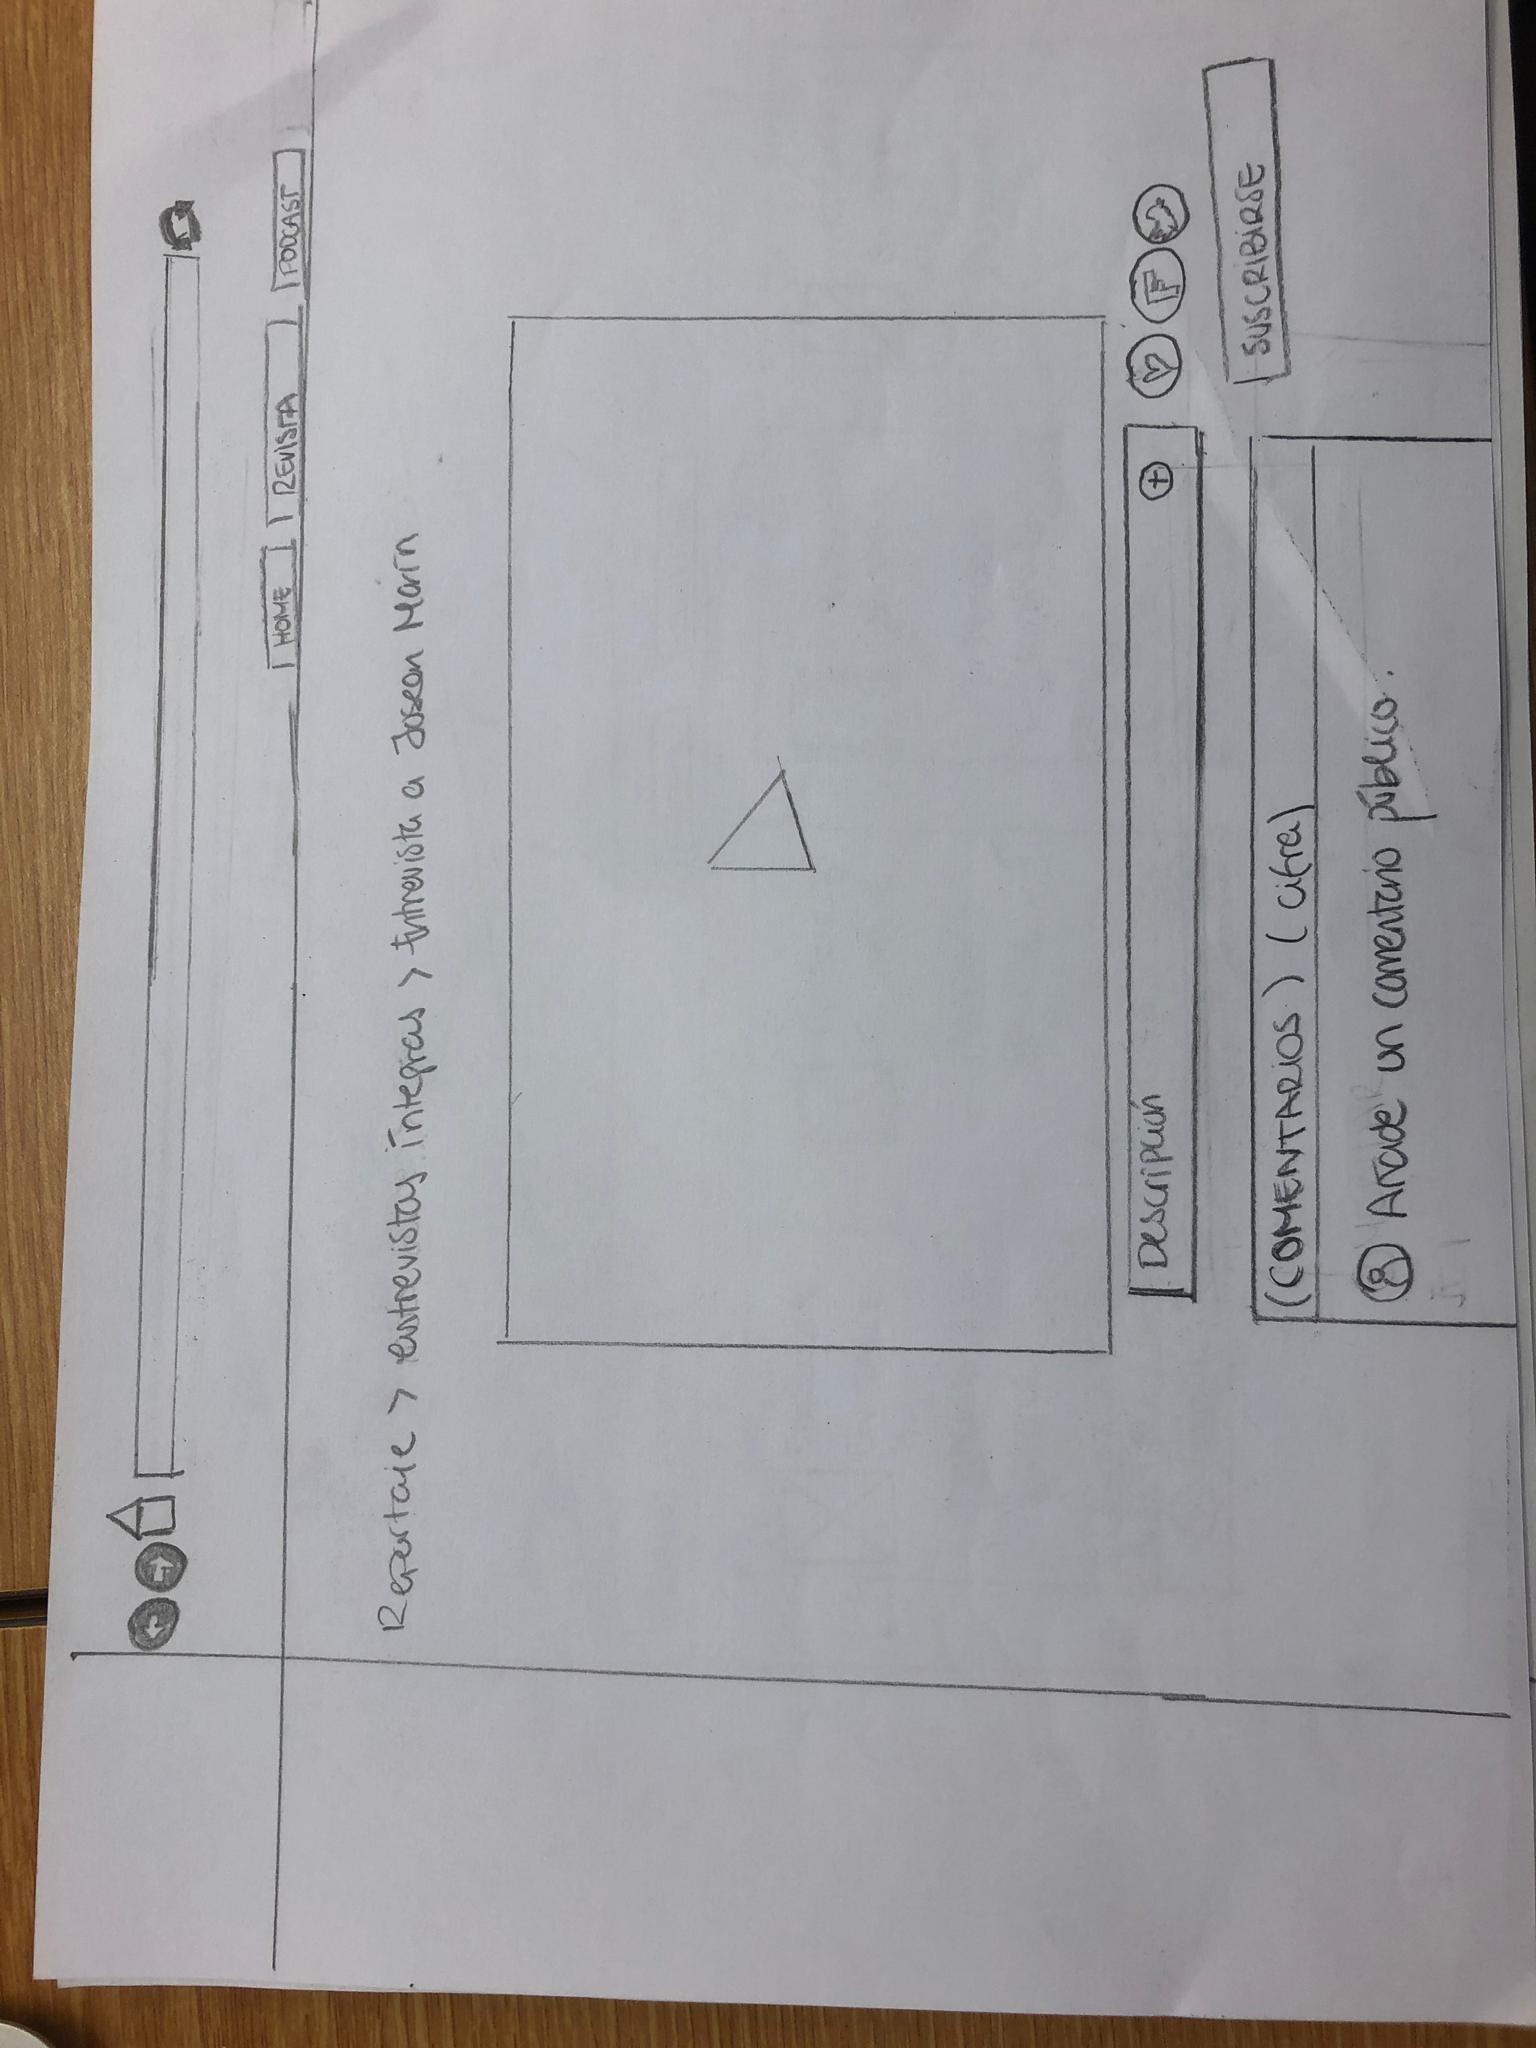 HOME REVISTA PODCAST
Reportaje > entrevistas íntegras > Entrevista a Josean Marín
Descripción +
F
SUSCRIBIRSE
(COMENTARIOS) (cifra)
Añade un comentario público.